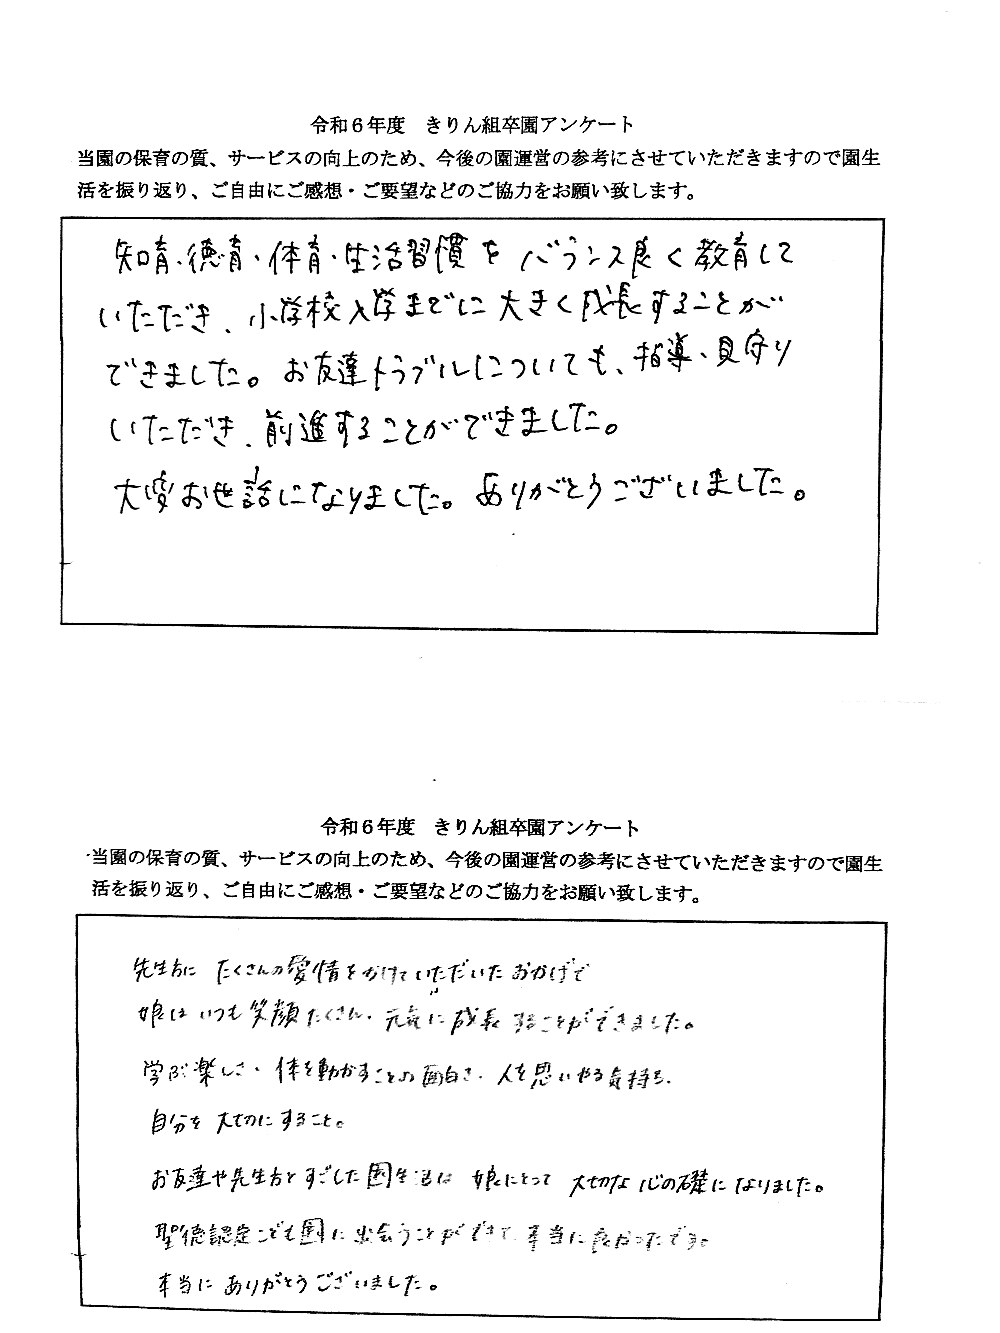 令和６年度　きりん組卒園アンケート
当園の保育の質、サービスの向上のため、今後の園運営の参考にさせていただきますので園生
活を振り返り、ご自由にご感想・ご要望などのご協力をお願い致します。
知育・徳育・体育・生活習慣を バランス良く教育して
いただき、小学校入学までに大きく成長することが
できました。お友達トラブルについても、指導、見守り
いただき、前進することができました。
大変お世話になりました。ありがとうございました。
令和６年度　きりん組卒園アンケート
当園の保育の質、サービスの向上のため、今後の園運営の参考にさせていただきますので園生
活を振り返り、ご自由にご感想・ご要望などのご協力をお願い致します。
先生方に たくさんの愛情をかけていただいたおかげで
娘は いつも笑顔たくさん、元気に成長することができました。
学ぶ楽しさ、体を動かすことの面白さ、人を思いやる気持ち、
自分を大切にすること。
お友達や先生方とすごした園生活は 娘にとって 大切な心の礎になりました。
聖徳認定こども園に出会うことができて 本当に良かったです。
本当にありがとうございました。